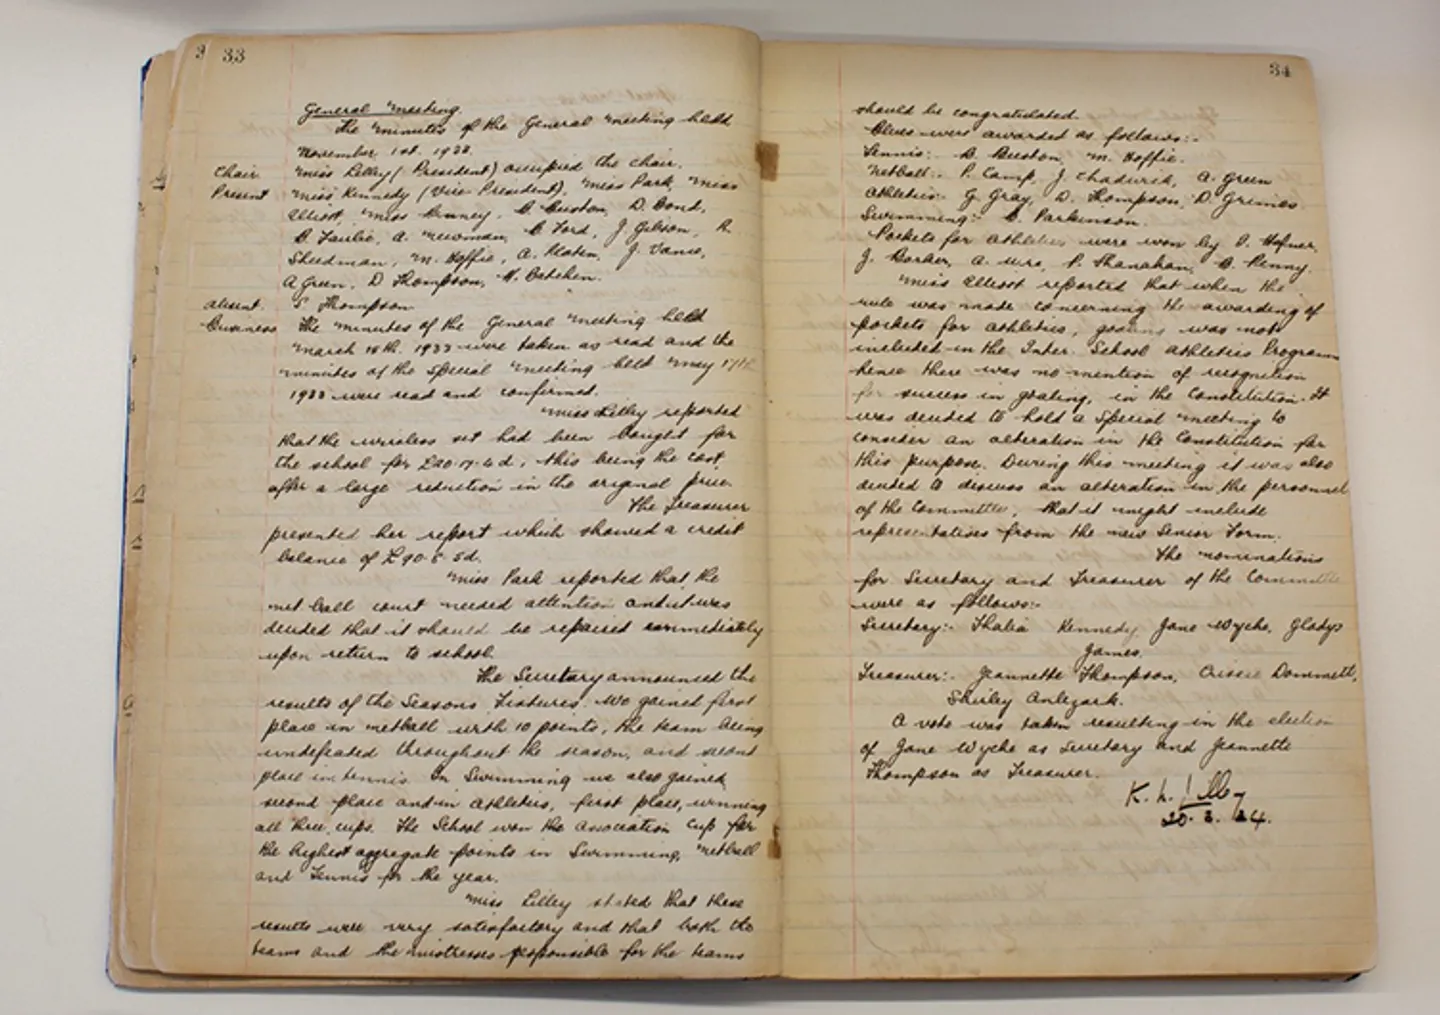 33
General Meeting
The minutes of the General Meeting held
November 1st. 1933.
Chair Miss Lilley (President) occupied the chair.
Present Miss Kennedy (Vice President), Miss Park, Miss
Elliott, Miss Binney, B. Buston, D. Bond,
B. Fardie, A. Newman, B. Ford, J. Gibson, R.
Steedman, M. Hoffie, A. J. Vance,
A Green, D Thompson,
Absent. S. Thompson
Business The minutes of the General Meeting held
March 15th. 1933 were taken as read and the
minutes of the Special Meeting held May 17th
1933 were read and confirmed.
Miss Lilley reported
that the wireless set had been bought for
the school for £20.17.6d, this being the cost
after a large reduction in the original price.
The Treasurer
presented her report which showed a credit
balance of £90.5.5d.
Miss Park reported that the
net ball court needed attention and it was
decided that it should be repaired immediately
upon return to school.
The Secretary announced the
results of the Seasons Fixtures. We gained first
place in netball with 10 points, the team being
undefeated throughout the season, and second
place in tennis. In Swimming we also gained
second place and in athletics, first place, winning
all three cups. The School won the Association Cup for
the highest aggregate points in Swimming, Netball
and Tennis for the year.
Miss Lilley stated that these
results were very satisfactory and that both the
teams and the mistresses responsible for the teams
34
should be congratulated.
Blues were awarded as follows:-
Tennis:- B. Buston, M. Hoffie.
Netball:- P. Camp, J. Chadwick, A. Green
Athletics:- G. Gray, D. Thompson, D. Grimes.
Swimming:- B. Parkinson.
Pockets for Athletics were won by P. Hafner,
J. Barber, A. P. Shanahan, B. Penny.
Miss Elliott reported that when the
rule was made concerning the awarding of
pockets for athletics, goaling was not
included in the Inter School Athletics Programme
hence there was no mention of recognition
for success in goaling, in the Constitution. It
was decided to hold a Special Meeting to
consider an alteration in the Constitution for
this purpose. During this meeting it was also
decided to discuss an alteration in the personnel
of the Committee, that it might include
representatives from the new Senior Form.
The nominations
for Secretary and Treasurer of the Committee
were as follows:-
Secretary:- Thalia Kennedy, Jane Wyche, Gladys
James.
Treasurer:- Jeannette Thompson, Crissie Dommett,
Shirley Anlezark.
A vote was taken resulting in the election
of Jane Wyche as Secretary and Jeannette
Thompson as Treasurer.
K. L. Lilley
20.3.34.